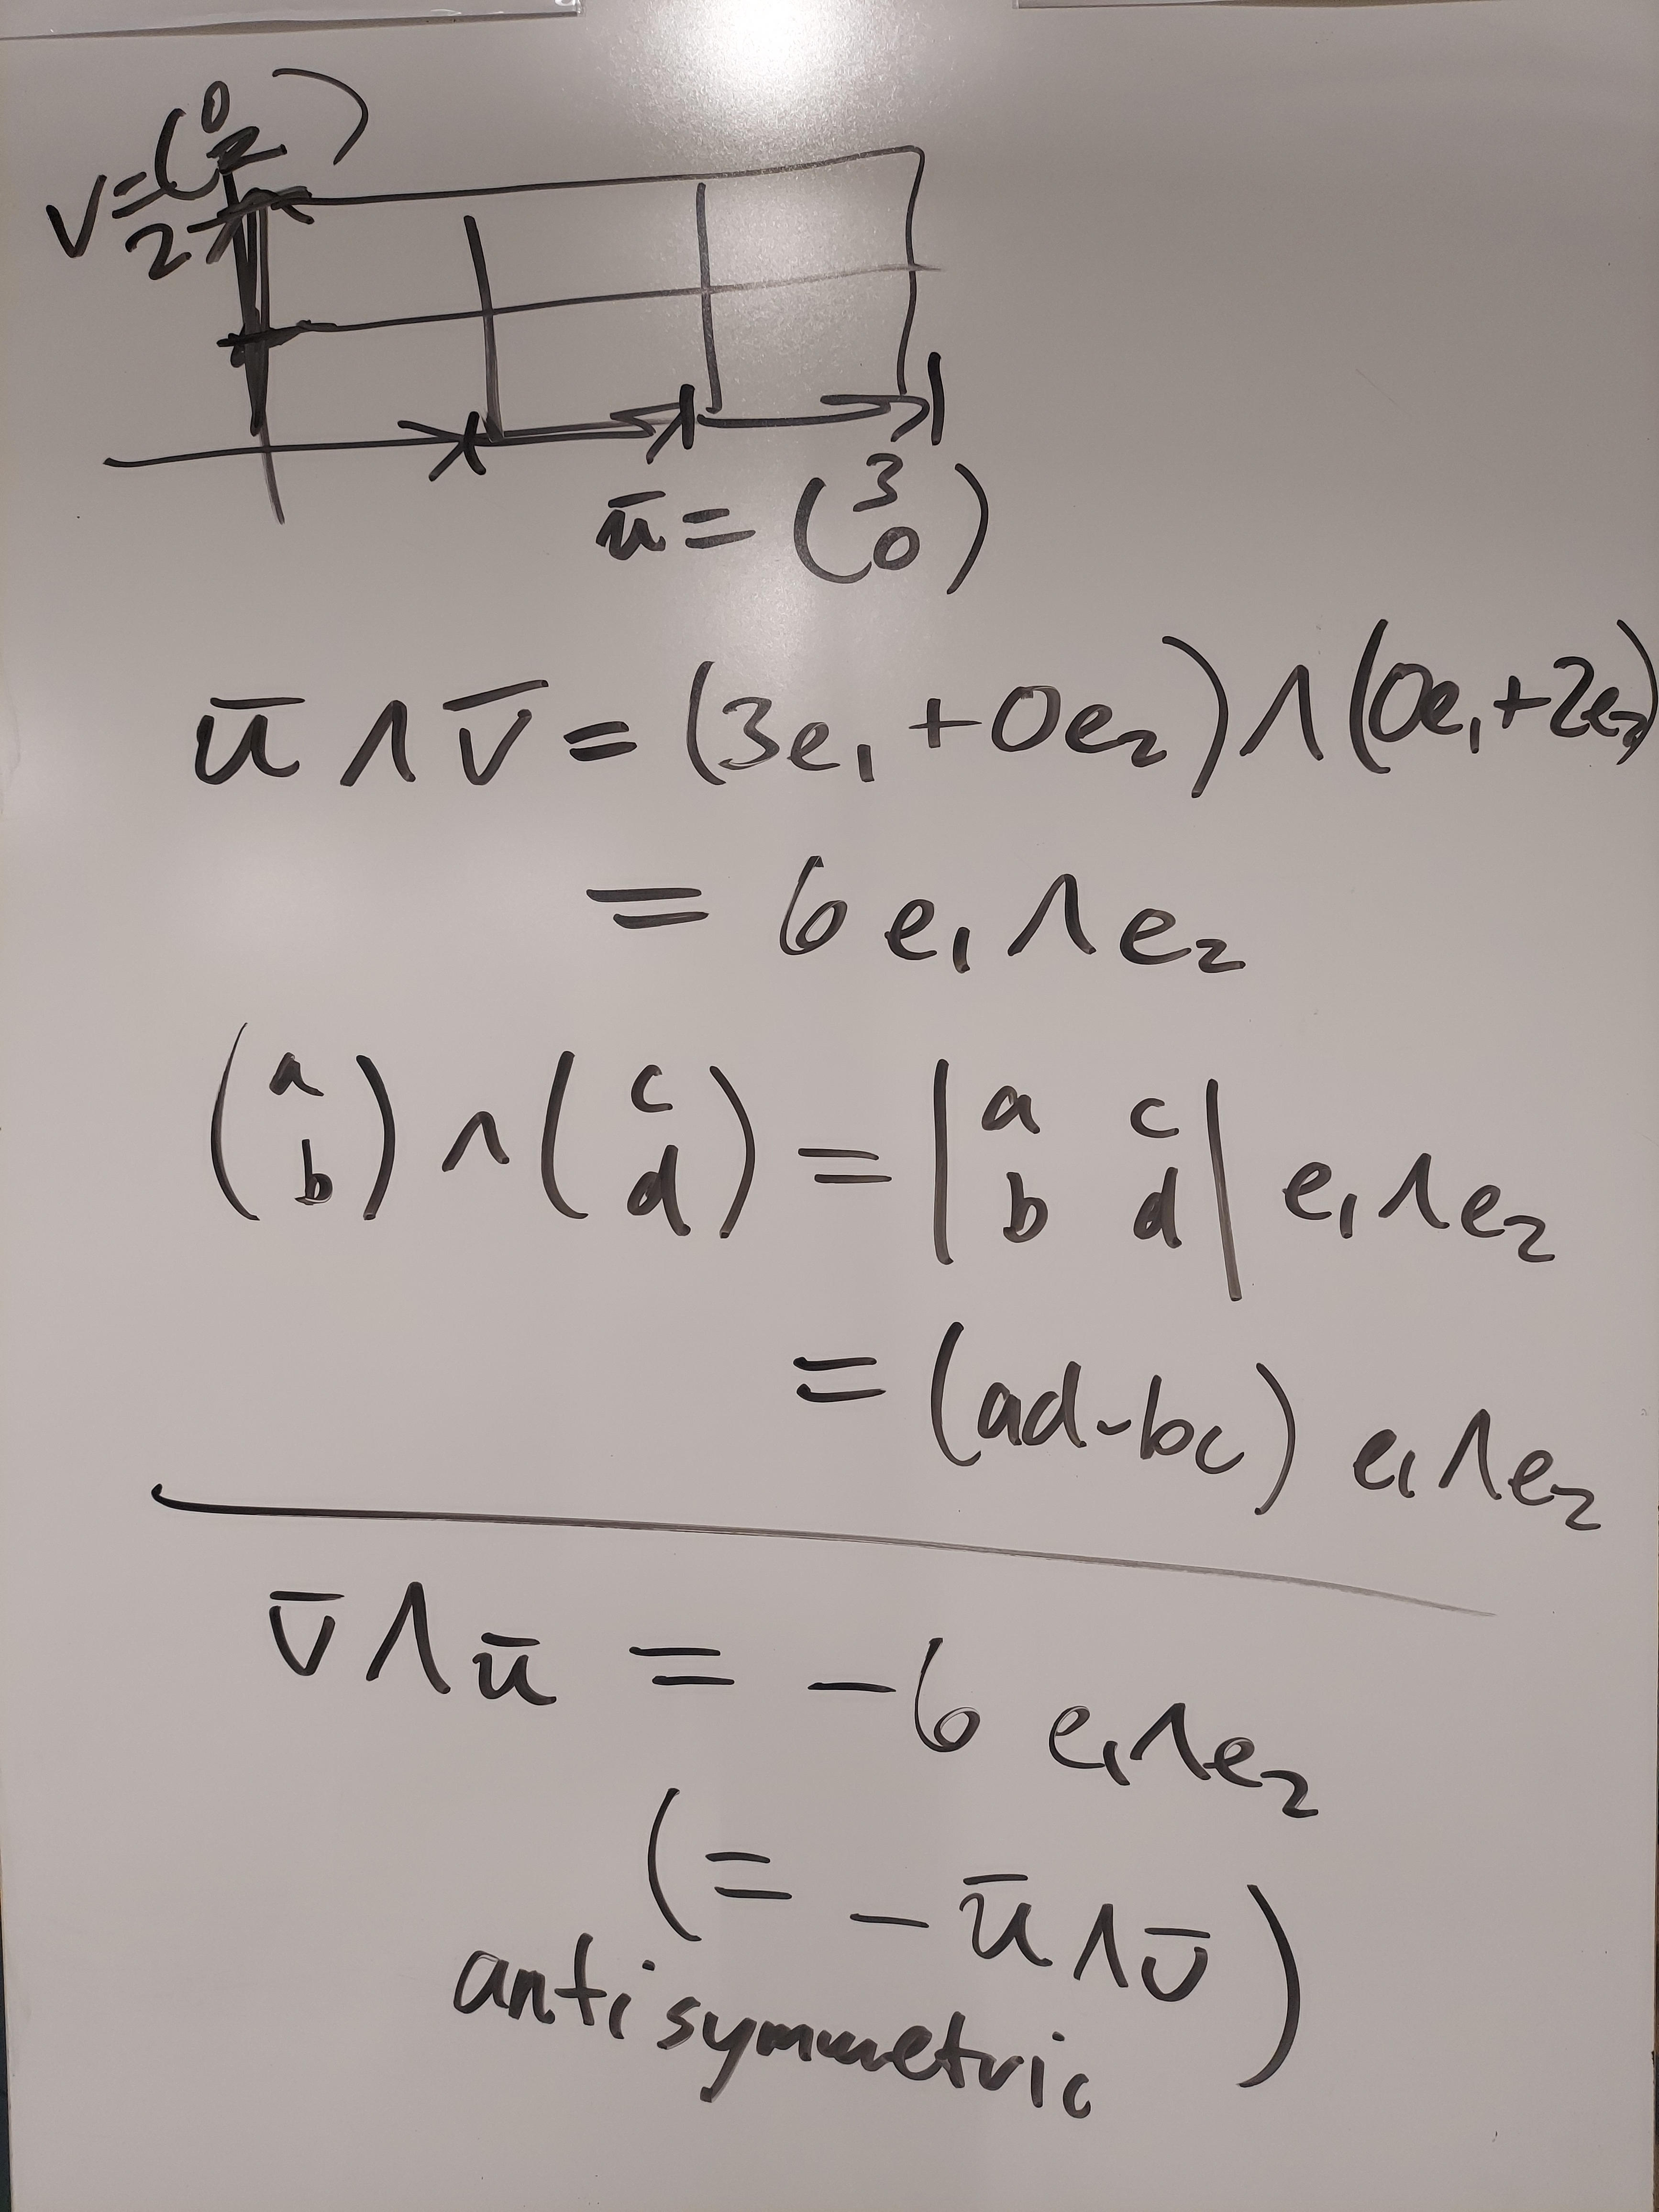 v=(0
2)
2
ū=(3
0)
ū∧v̄=(3e₁+0e₂)∧(0e₁+2e₂)
=6e₁∧e₂
(a
b)∧(c
d)=|a c
b d|e₁∧e₂
=(ad-bc)e₁∧e₂
v̄∧ū=-6e₁∧e₂
(=-ū∧v̄)
antisymmetric